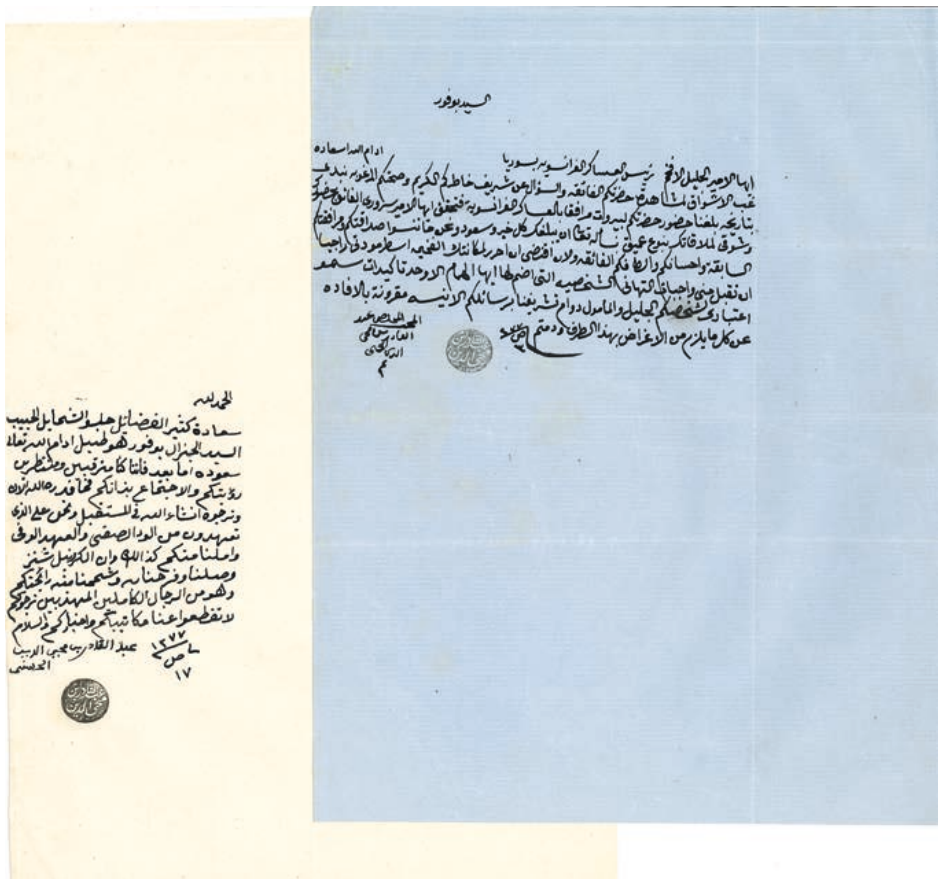 السيد بوفور
ادام الله اسعاده
ايها الامير الجليل الافخم رئيس العساكر الفرانسويه بسوريا
غب الاشواق لمشاهدة حضرتكم الفائقه والسؤال عن شريف خاطركم الكريم وصحتكم المرغوبه نبدي
بتاريخه بلغنا حضور حضرتكم لبيروت مرافقا بالعساكر الفرانسويه فتحقق ايها الامير سروري الفائق بحضوركم
وشوقي لملاقاتكم بنوع عميق نساله تعالى ان يبلغكم كل خير وسعود ونحن ما ننسوا صداقتكم ومرافقتكم
السابقه واحسانكم والطافكم الفائقه ولان اقتضى ان احرر لمكانتك الفخيمه اسطر مودتي راجيا
ان تقبل مني واجبات التهاني الشخصيه التي اضم لها ايها الهمام الاوحد تاكيدات سمو
اعتباري لشخصكم الجليل والمامول دوام تشريفنا برسائلكم الانيسه مقرونة بالافاده
عن كل ما يلزم من الاغراض بهذا الطرف ودمتم
المخلص عبد
القادر بن محي
الدين الحسني
الحمد لله
سعادة كثير الفضائل حلو الشمايل الحبيب
السيد الجنرال بوفور هوطبيل ادام الله تعالى
سعوده اما بعد فاننا كنا مترقبين ومنتظرين
رؤيتكم والاجتماع بذاتكم فما قدره الله الان
ونرجوه انشاء الله في المستقبل ونحن على الذي
تعهدون من الود الصفي والعهد الوفي
واملنا منكم كذالك وان الكرنيل شنز
وصلنا وفرحنا به وشممنا منه رائحتكم
وهو من الرجال الكاملين المهذبين نرجوكم
لا تقطعوا عنا مكاتيبكم واخباركم والسلام
١٢٧٧ عبد القادر بن محيي الدين
ص الحسني
١٧
عبد القادر بن
محي الدين